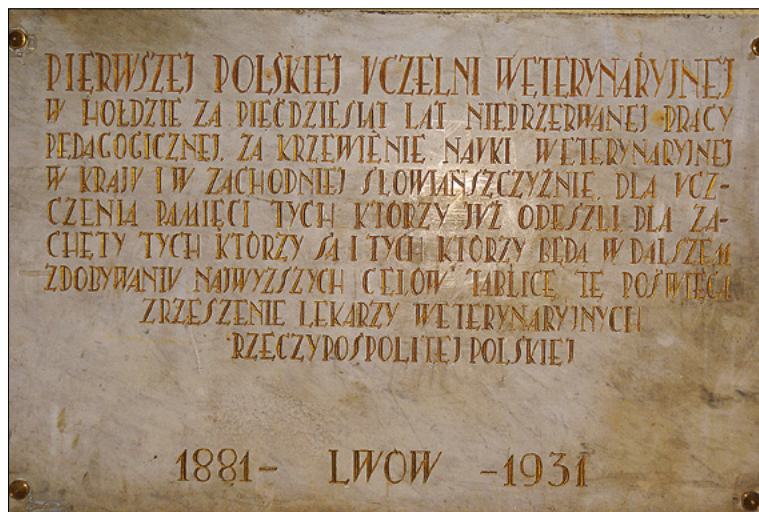 PIERWSZEJ POLSKIEJ VCZELNI WETERYNARYJNEJ
W HOŁDZIE ZA PIĘĆDZIESIĄT LAT NIEPRZERWANEJ PRACY
PEDAGOGICZNEJ, ZA KRZEWIENIE NAVKI WETERYNARYJNEJ
W KRAJV I W ZACHODNIEJ SŁOWIAŃSZCZYŹNIE, DLA VCZ-
CZENIA PAMIĘCI TYCH KTÓRZY JVŻ ODESZLI, DLA ZA-
CHĘTY TYCH KTÓRZY SĄ I TYCH KTÓRZY BĘDĄ W DALSZEM
ZDOBYWANIV NAJWYŻSZYCH CELÓW TABLICĘ TĘ POŚWIĘCA
ZRZESZENIE LEKARZY WETERYNARYJNYCH
RZECZYPOSPOLITEJ POLSKIEJ
1881 – LWÓW – 1931